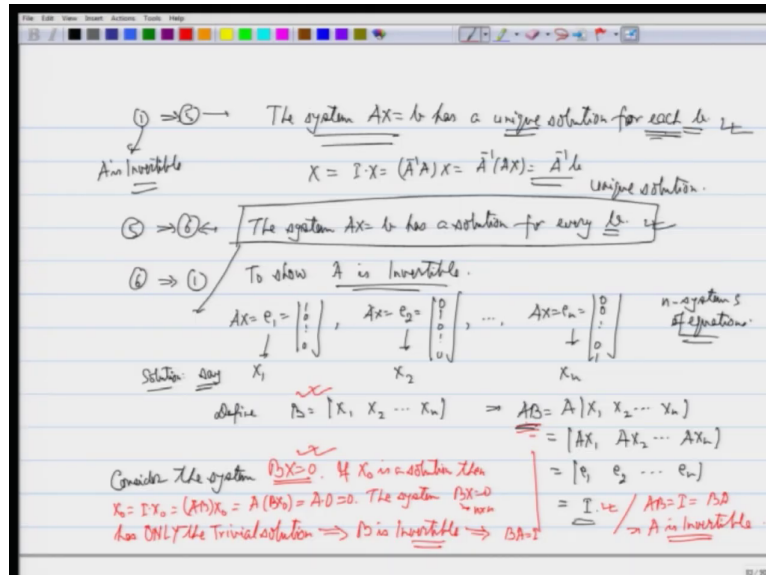 File Edit View Insert Actions Tools Help
① ⇒ ⑤ → The system AX = b has a unique solution for each b
A is Invertible
X = I·X = (A⁻¹A)X = A⁻¹(AX) = A⁻¹b
unique solution.
⑤ ⇒ ⑥ The system AX = b has a solution for every b
⑥ ⇒ ① To show A is Invertible.
AX = e₁ = [1 0 ⋮ 0], AX = e₂ = [0 1 0 ⋮ 0], ... AX = eₙ = [0 0 ⋮ 0 1] n-systems of equations.
Solution say X₁ X₂ Xₙ
Define B = [X₁ X₂ ... Xₙ] ⇒ AB = A[X₁ X₂ ... Xₙ]
= [AX₁ AX₂ ... AXₙ]
Consider the system BX=0. If X₀ is a solution then = [e₁ e₂ ... eₙ]
X₀ = I·X₀ = (AB)X₀ = A(BX₀) = A·0 = 0. The system BX=0 = I.
n×n
AB = I = BA
has ONLY the Trivial solution ⇒ B is Invertible ⇒ BA = I
→ A is Invertible.